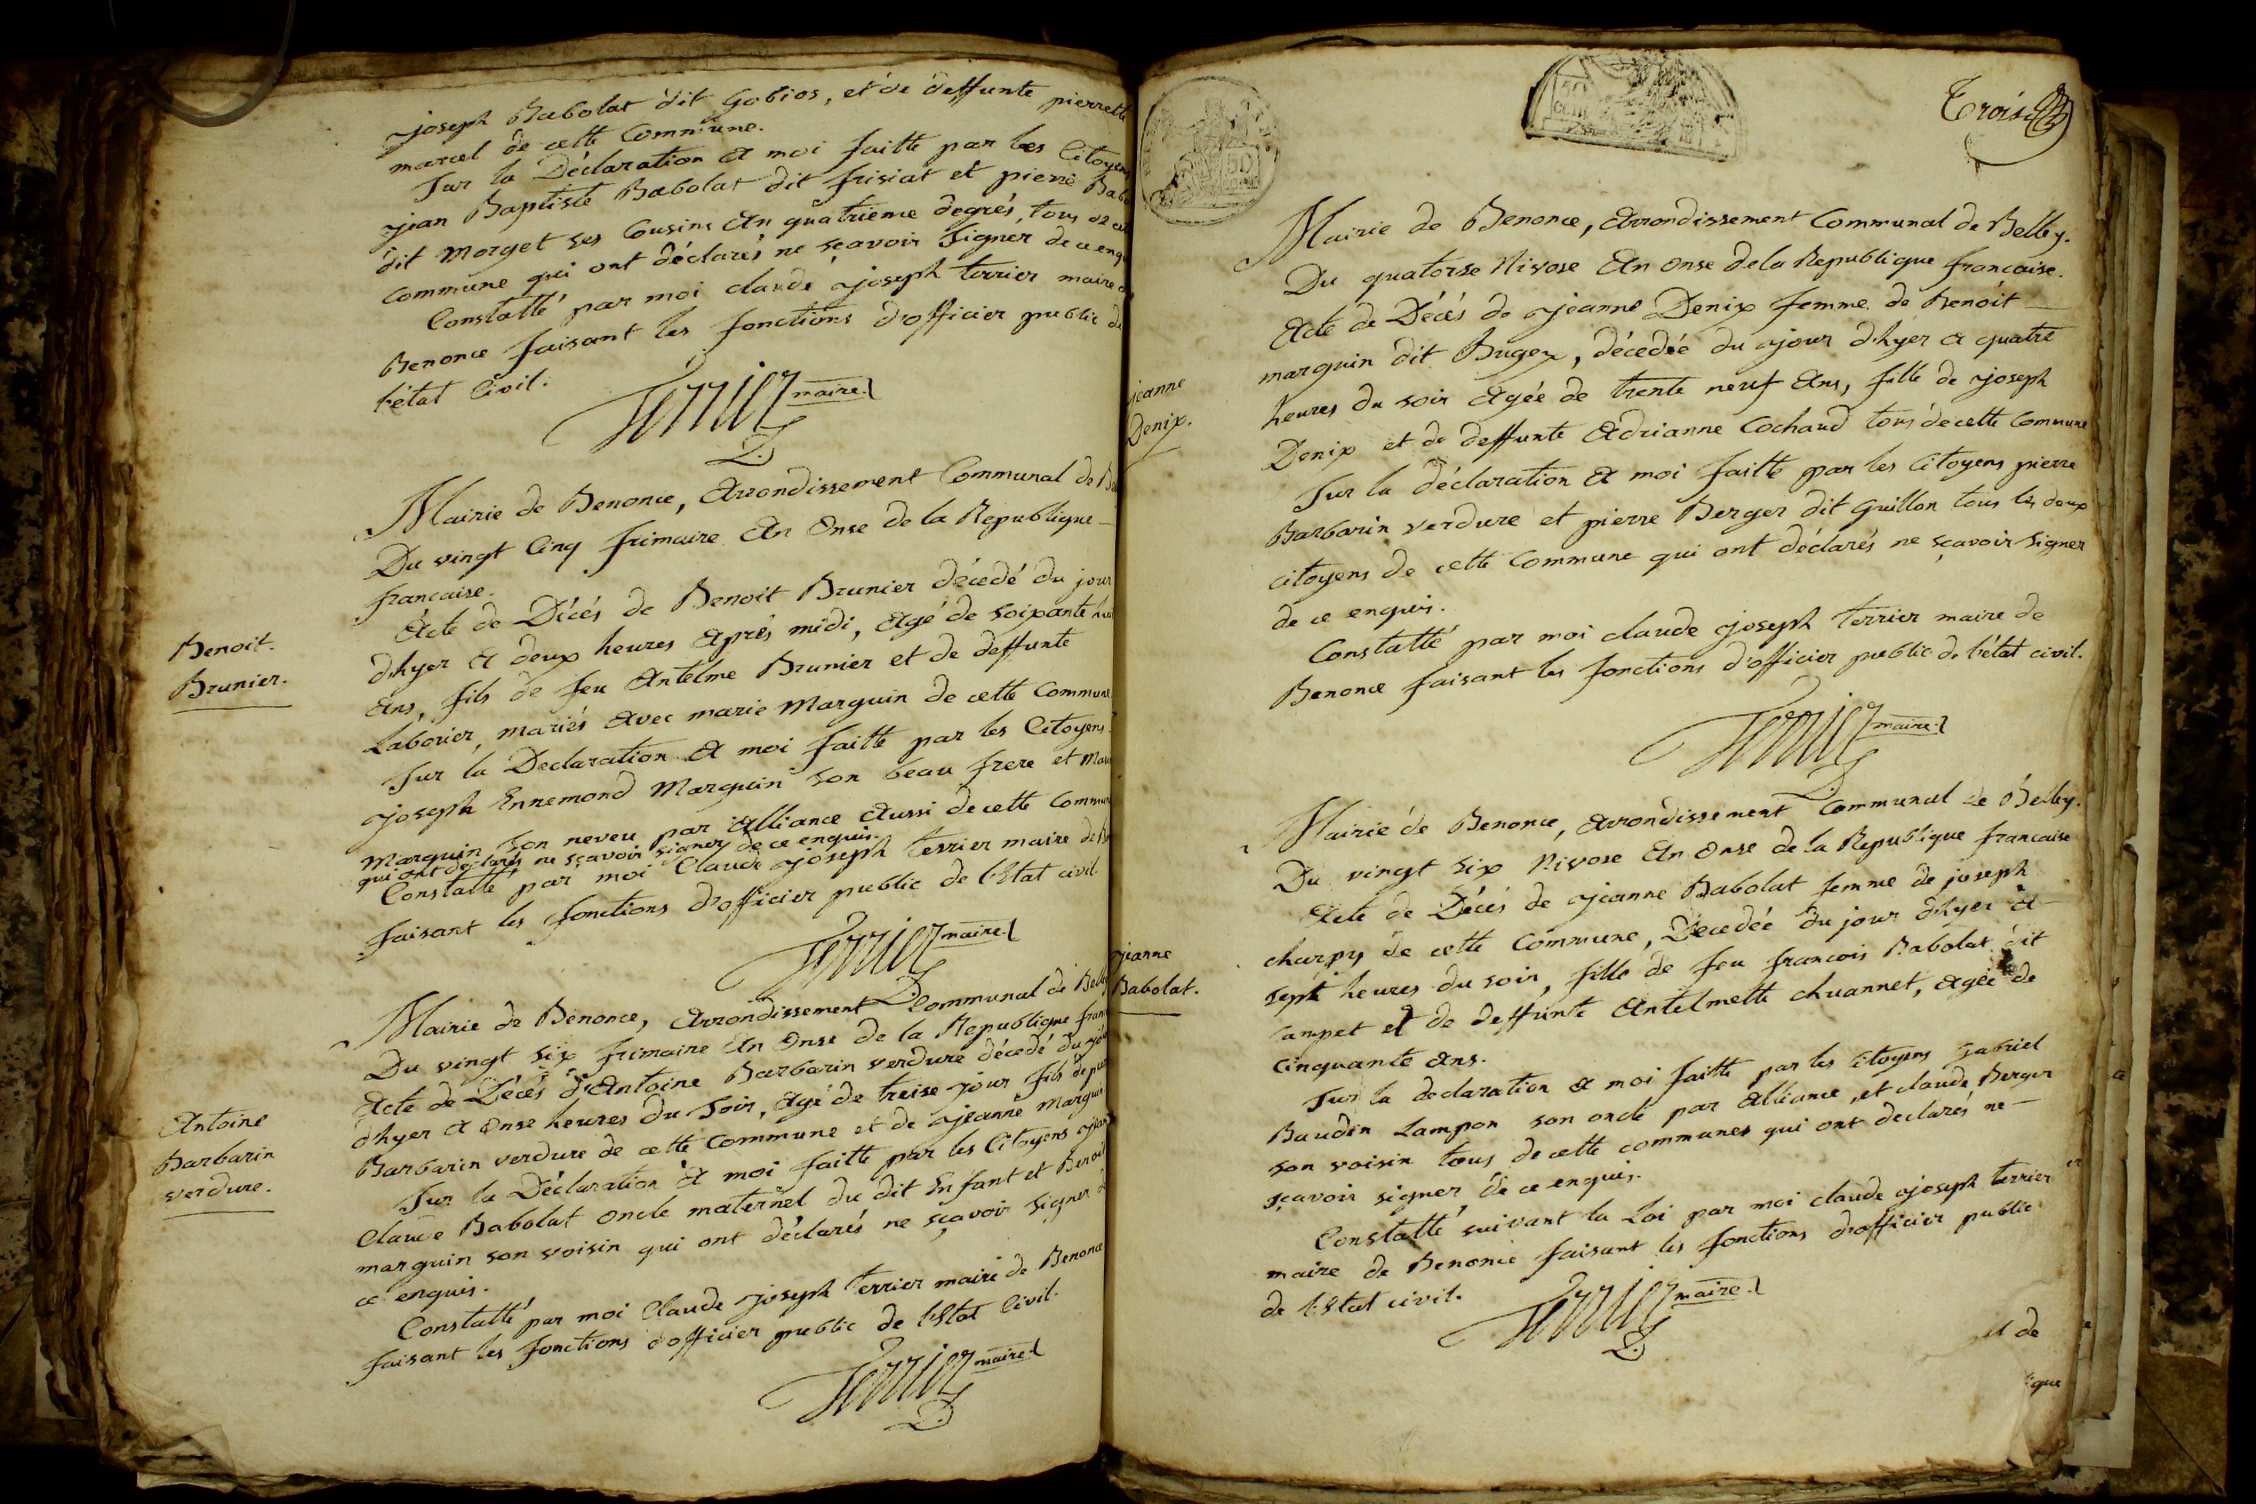 joseph Babolat dit Gobios, et de deffunte pierrette
marcel de cette Commune.
Sur la Déclaration a moi faitte par les Citoyens
jean Baptiste Babolat dit frisiat et pierre
dit Morget ses Cousins au quatrieme degrés, tous de
Commune qui ont déclarés ne sçavoir Signer de ce enquis
Constatté par moi claude joseph terrier maire
Benonce faisant les fonctions d'officier public de
l'état Civil.
Terrier maire
Mairie de Benonce, Arrondissement Communal de
Du vingt Cinq frimaire An Onse de la Republique
francaise.
Acte de Décés de Benoit Brunier décedé du jour
d'hyer a deux heures Après midi, Agé de soixante
Benoit.
Brunier.
Ans, fils de feu Antelme Brunier et de deffunte
Laborier, mariés Avec marie Marguin de cette Commune
Sur la Declaration a moi faitte par les Citoyens
joseph Ennemond Marguin son beau frere et
Marguin son neveu par Alliance Aussi de cette Commune
qui ont déclarés ne sçavoir signer de ce enquis.
Constatté par moi Claude joseph terrier maire de
faisant les fonctions d'officier public de l'Etat civil.
Terrier maire
Mairie de Benonce, Arrondissement Communal de Belley
Du vingt six frimaire An Onse de la Republique
Acte de Décés d'Antoine Barbarin verdure décedé du
d'hyer a Onse heures du Soir, Agé de treise jour, fils de
Antoine
Barbarin
verdure.
Barbarin verdure de cette Commune et de jeanne Marguin
Sur la Déclaration a moi faitte par les Citoyens
Claude Babolat oncle maternel du dit Enfant et Benoit
marguin son voisin qui ont déclarés ne sçavoir Signer
ce enquis.
Constatté par moi Claude joseph terrier maire de Benonce
faisant les fonctions d'officier public de l'Etat Civil.
Terrier maire
50
Trois
Mairie de Benonce, Arrondissement Communal de Belley.
Du quatorse Nivose An Onse de la Republique francaise.
Acte de Décés de jeanne Denix femme de Benoit
marguin dit Bugex, décedée du jour d'hyer a quatre
jeanne
Denix.
heures du soir Agée de trente neuf Ans, fille de joseph
Denix et de deffunte Adrianne Cochaud tous de cette Commune
Sur la déclaration a moi faitte par les Citoyens pierre
Barbarin verdure et pierre Berger dit Guillon tous les deux
citoyens de cette Commune qui ont déclarés ne sçavoir Signer
de ce enquis.
Constatté par moi claude joseph terrier maire de
Benonce faisant les fonctions d'officier public de l'état civil.
Terrier maire
Mairie de Benonce, Arrondissement Communal de Belley.
Du vingt six Nivose An Onse de la Republique francaise
Acte de Décés de jeanne Babolat femme de joseph
charpy de cette Commune, Décedée du jour d'hyer a
jeanne
Babolat.
sept heures du soir, fille de feu francois Babolat dit
campet et de deffunte Antelmette chuannet, Agée de
Cinquante Ans.
Sur la declaration a moi faitte par les Citoyens Gabriel
Baudin Lampon son oncle par Alliance, et claude Berger
son voisin tous de cette communes qui ont declarés ne
sçavoir signer de ce enquis.
Constatté suivant la Loi par moi claude joseph terrier
maire de Benonce faisant les fonctions d'officier public
de l'Etat civil.
Terrier maire
de
que